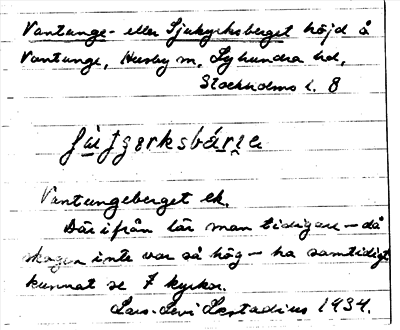 Vantunge- eller Sjukyrksberget höjd å
Vantunge, Husby m, Lyhundra hd,
Stockholms l. 8
Vantungeberget ek.
Därifrån lär man tidigare – då
skogen inte var så hög – ha samtidigt
kunnat se 7 kyrkor.
Lars-Levi Læstadius 1934.